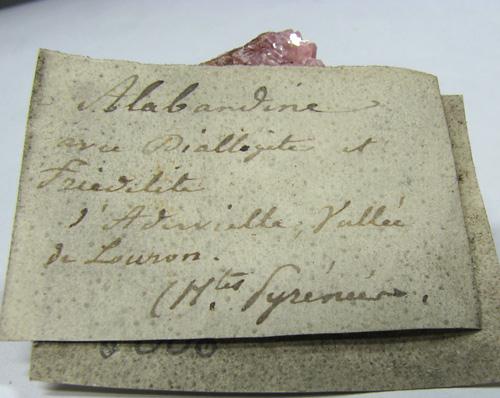 Alabandine
avec Diallogite et
Friedelite
d'Adervielle, Vallée
de Louron.
(Htes Pyrénées.